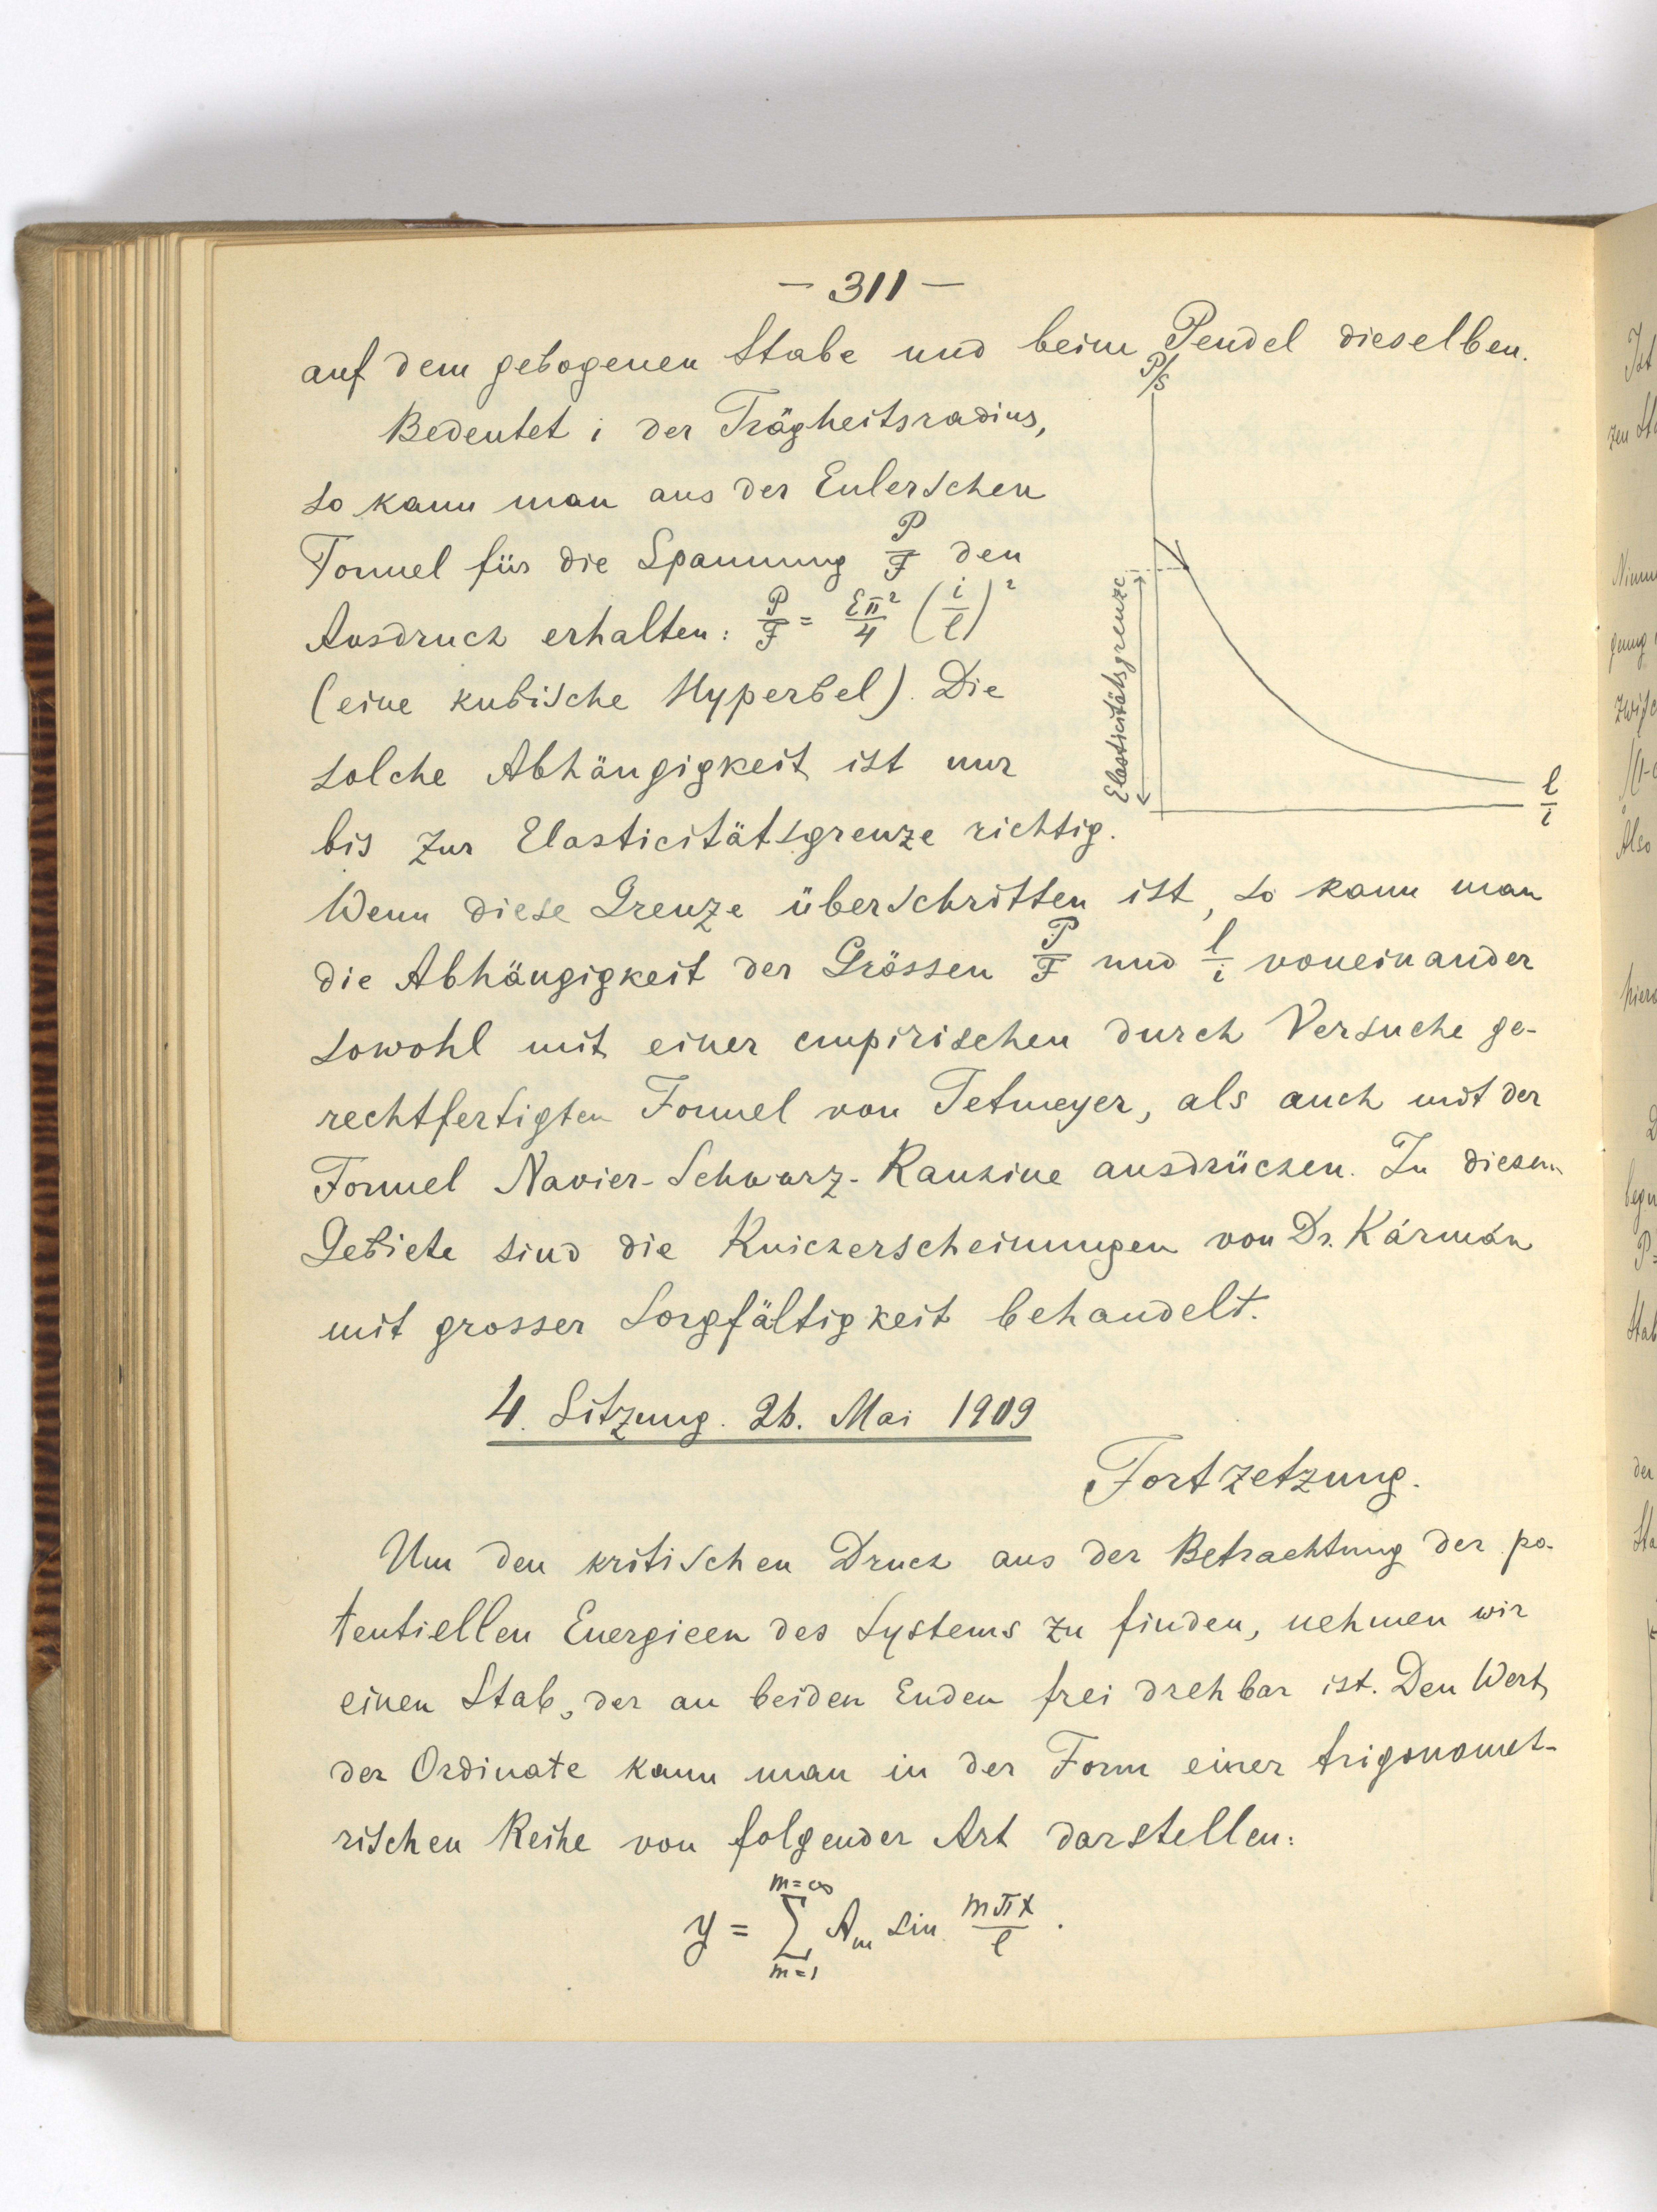 – 311 –
auf dem gebogenen Stabe und beim Pendel dieselben.
Bedeutet i der Trägheitsradius,
so kann man aus der Eulerschen
Formel für die Spannung P/F den
Ausdruck erhalten: P/F = Eπ²/4 (i/l)²
(eine kubische Hyperbel). Die
solche Abhängigkeit ist nur
bis zur Elasticitätsgrenze richtig.
P/S
Elasticitätsgrenze
l/i
Wenn diese Grenze überschritten ist, so kann man
die Abhängigkeit der Grössen P/F und l/i voneinander
sowohl mit einer empirischen durch Versuche ge-
rechtfertigten Formel von Tetmeyer, als auch mit der
Formel Navier-Schwarz-Rankine ausdrücken. In diesem
Gebiete sind die Knickerscheinungen von Dr. Kármán
mit grosser Sorgfältigkeit behandelt.
4. Sitzung. 26. Mai 1909
Fortzetzung.
Um den kritischen Druck aus der Betrachtung der po-
tentiellen Energieen des Systems zu finden, nehmen wir
einen Stab, der an beiden Enden frei drehbar ist. Den Wert
der Ordinate kann man in der Form einer trigonomet-
rischen Reihe von folgender Art darstellen:
m=∞
y = ∑ Am sin mπx/l .
m=1